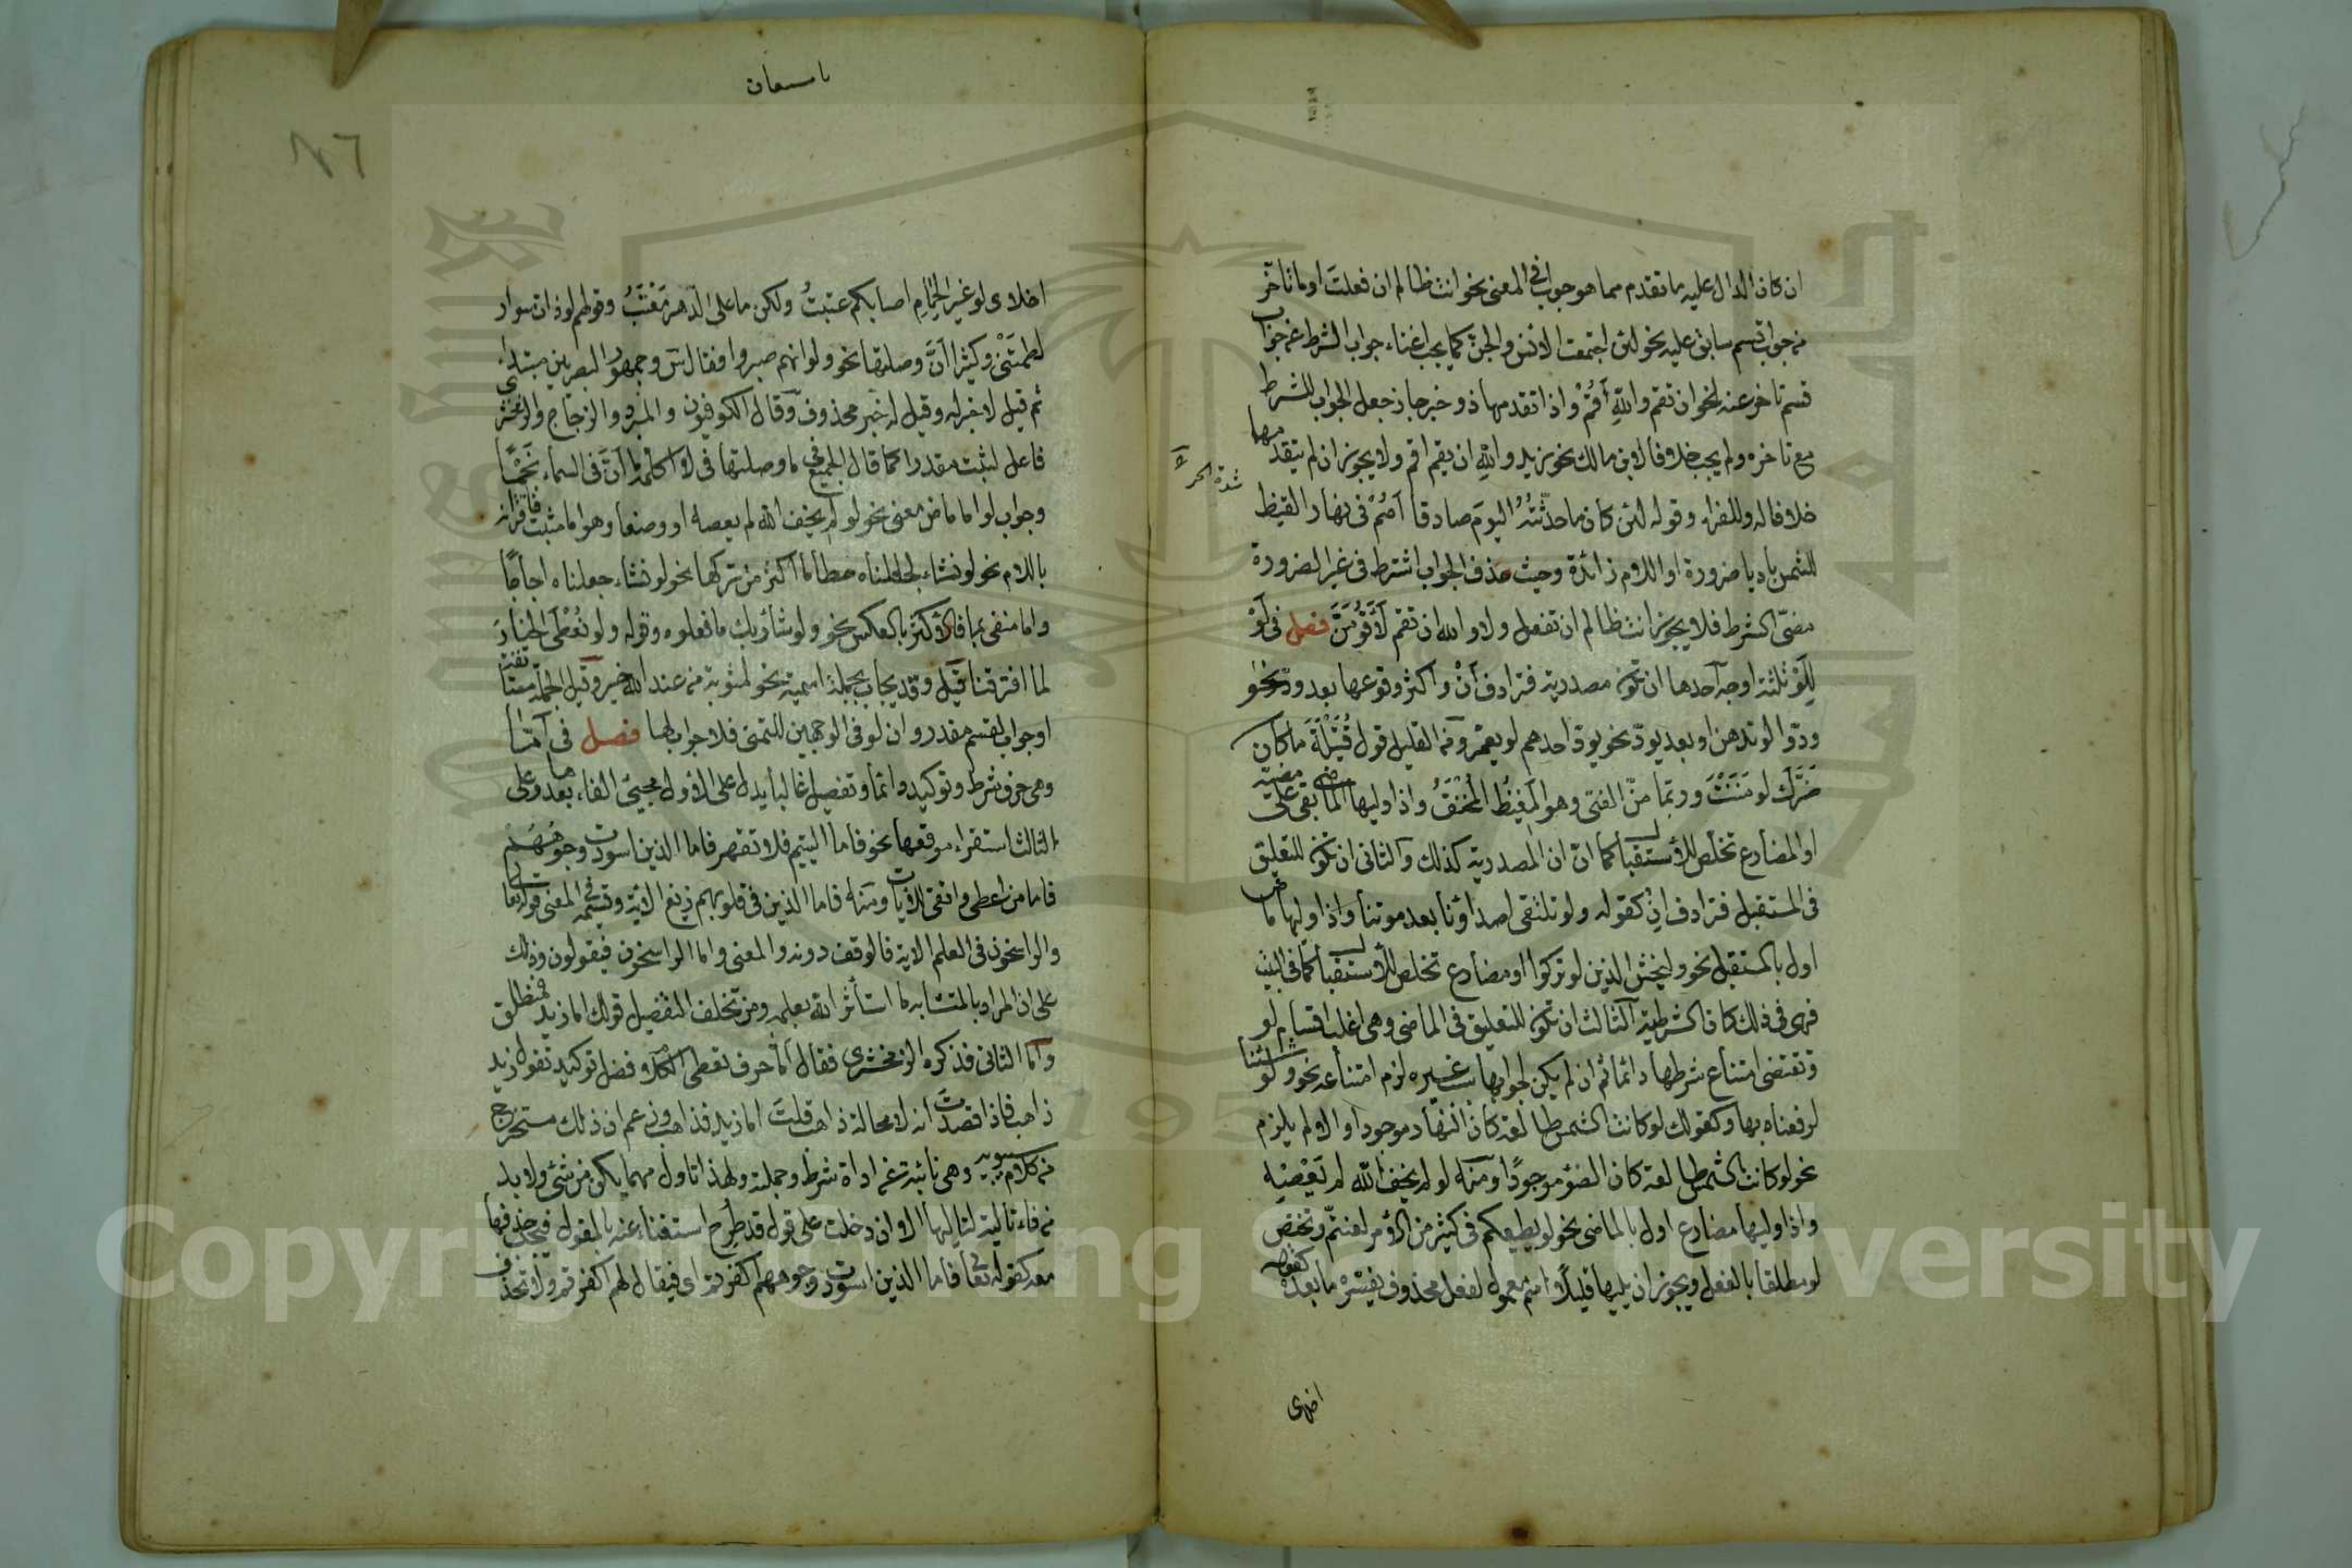 ان كان الدال عليه ما تقدم مما هو جواب في المعنى نحو انت ظالم ان فعلت او ما تأخر
من جواب قسم سابق عليه نحو لئن اجتمعت الانس والجن كما يجب اغناء جواب الشرط عن جواب
قسم تاخر عنه نحو ان تقم والله أقُمْ واذا تقدمهما ذو خبر جاز جعل الجواب للشرط
مع تاخره ولم يجب خلافا لابن مالك نحو زيد والله ان يقم اقم ولا يجوز ان لم يتقدمهما
خلافا له وللفراء وقوله لئن كان ما حدّثتُهُ اليومَ صادقا أصُمْ في نهار القيظ
شدة الحر
للشمس باديا ضرورة او اللام زائدة وحيث حذف الجواب اشترط في غير الضرورة
مضىّ الشرط فلا يجوز انت ظالم ان تفعل ولا والله ان تقم لَأَقُومَنَّ فصل في لَوْ
لِلَوْ ثلثة اوجه آحدها ان تكون مصدرية فترادف أنْ واكثر وقوعها بعد ودّ نحو
ودّوا لو تدهن او بعد يودّ نحو يودّ احدهم لو يعمّر ومن القليل قول قُتَيْلَةَ ما كان
ضَرَّكَ لو مَنَنْتَ وربّما منّ الفتى وهو المَغِيظُ المُحْنَقُ واذا وليها الماضي بقى على مضيّه
او المضارع تخلّص للأستقبال كما انّ ان المصدرية كذلك وآلثانى ان تكون للتعليق
في المستقبل فترادف اِنْ كقوله ولو تلتقى اصداؤنا بعد موتنا واذا وليها ماض
اول بالمستقبل نحو وليخش الذين لو تركوا او مضارع تخلص للأستقبال كما في البيت
فهى في ذلك كان الشرطية آلثالث ان تكون للتعليق في الماضى وهى اغلب اقسام لو
وتقتضى امتناع شرطها دائما ثم ان لم يكن لجوابها سبب غيره لزم امتناعه نحو ولو شئنا
لرفعناه بها وكقولك لو كانت الشمس طالعة كان النهار موجودا والا لم يلزم
نحو لو كانت الشمس طالعة كان الضوء موجودًا ومنه لو لم يخف الله لم يَعْصِهِ
واذا وليها مضارع اول بالماضى نحو لو يطيعكم فى كثير من الأمر لعنتّم وتختص
لو مطلقا بالفعل ويجوز ان يليها قليلًا اسم معمول لفعل محذوف يفسّره ما بعده كقوله
اخلاى
٨٦
اخلاى لو غير الحِمامِ اصابكم عتبتُ ولكن ما على الدّهر مَعْتَبُ وقولهم لو ذات سوار
لطمَتْنى وكثيرا أنَّ وصلتها نحو ولو انهم صبروا فقال س وجمهور البصريين مبتداء
ثم قيل لا خبر له وقيل له خبر محذوف وقال الكوفيون والمبرد والزجاج والزمخشرى
فاعل لثبت مقدرا كما قال الجميع في ما وصلتها فى لا اكلّمه ما أنّ فى السماء نَجْمًا
وجواب لو اما ماض معنى نحو لو لم يخف الله لم يعصه او وضعا وهو اما مثبت فاقترانه
باللام نحو لو نشاء لجعلناه حطاما اكثر من تركها نحو لو نشاء جعلناه اجاجًا
واما منفى بما فالأكثر بالعكس نحو ولو شاء ربك ما فعلوه وقوله ولو نُعْطَى الخيارَ
لما افترقنا قيل وقد يجاب بجملة اسمية نحو لمثوبة من عند الله خير وقيل الجملة مستأنفة
او جواب لقسم مقدر وان لو في الوجهين للتمنى فلا جواب لها فصل فى أمّا
وهى حرف شرط وتوكيد دائما وتفصيل غالبا يدل على الأول مجيئ الفاء بعدها وعلى
الثالث استقراء مواقعها نحو فاما اليتيم فلا تقهر فاما الذين اسودت وجوهُهُمْ
فاما من اعطى واتقى للأيات ومنه فاما الذين فى قلوبهم زيغ الآية وقسيمه فى المعنى قوله تعالى
والراسخون في العلم الاية فالوقف دونه والمعنى واما الراسخون فيقولون وذلك
على ان المراد بالمتشابه ما استأثر الله بعلمه ومن تخلف التفصيل قولك اما زيد فمنطلق
وأما الثانى فذكره الزمخشرى فقال أما حرف تعطى الكلام فضل توكيد تقول زيد
ذاهب فاذا قصدت انه لا محالة ذاهب قلت اما زيد فذاهب وزعم ان ذلك مستخرج
من كلام سيبويه وهى نائبة عن اداة شرط وجملته ولهذا تاول مهما يكن من شئ ولا بد
من فاء تالية لتاليها الا ان دخلت على قول قد طرح استغناء عنه بالمقول فيجب حذفها
معه كقوله تعالى فاما الذين اسودت وجوههم اكفرتم اى فيقال لهم اكفرتم ولا تحذف
Copyright © King Saud University